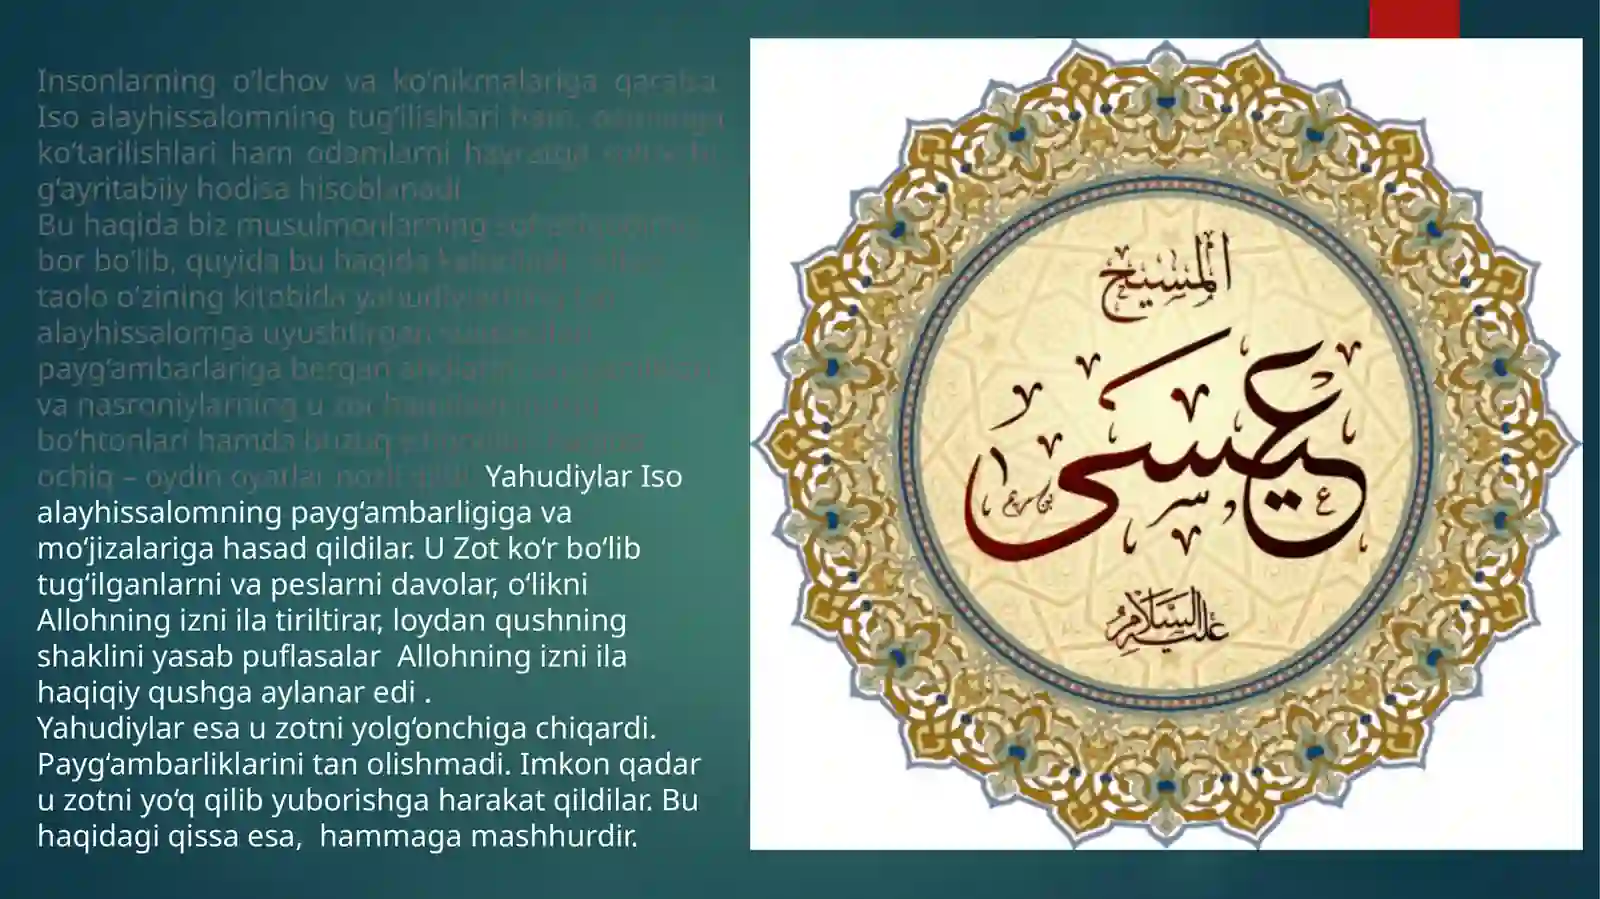 Insonlarning oʻlchov va koʻnikmalariga qaraba
Iso alayhissalomning tugʻilishlari ham, osmonga
koʻtarilishlari ham odamlarni hayratga
gʻayritabiiy hodisa hisoblanadi
Bu haqida biz musulmonlarning
bor boʻlib, quyida bu haqida
taolo oʻzining kitobida yahudiylarning
alayhissalomga uyushtirgan
paygʻambarlariga bergan
va nasroniylarning u zot haqidagi
boʻhtonlari hamda buzuq
ochiq – oydin oyatlar nozil qildi. Yahudiylar Iso
alayhissalomning paygʻambarligiga va
moʻjizalariga hasad qildilar. U Zot koʻr boʻlib
tugʻilganlarni va peslarni davolar, oʻlikni
Allohning izni ila tiriltirar, loydan qushning
shaklini yasab puflasalar  Allohning izni ila
haqiqiy qushga aylanar edi .
Yahudiylar esa u zotni yolgʻonchiga chiqardi.
Paygʻambarliklarini tan olishmadi. Imkon qadar
u zotni yoʻq qilib yuborishga harakat qildilar. Bu
haqidagi qissa esa,  hammaga mashhurdir.
المسيح
عيسى
ابن مريم
عليه السلام